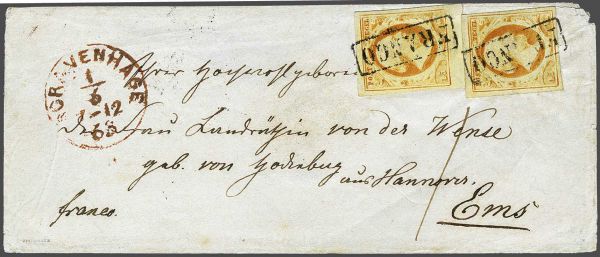 FRANCO
FRANCO
GRAVENHAGE
1
6
12
63
Ihrer Hochwohlgeboren
die Frau Landräthin von der Wense
geb. von Hodenberg
aus Hannover.
franco.
Ems